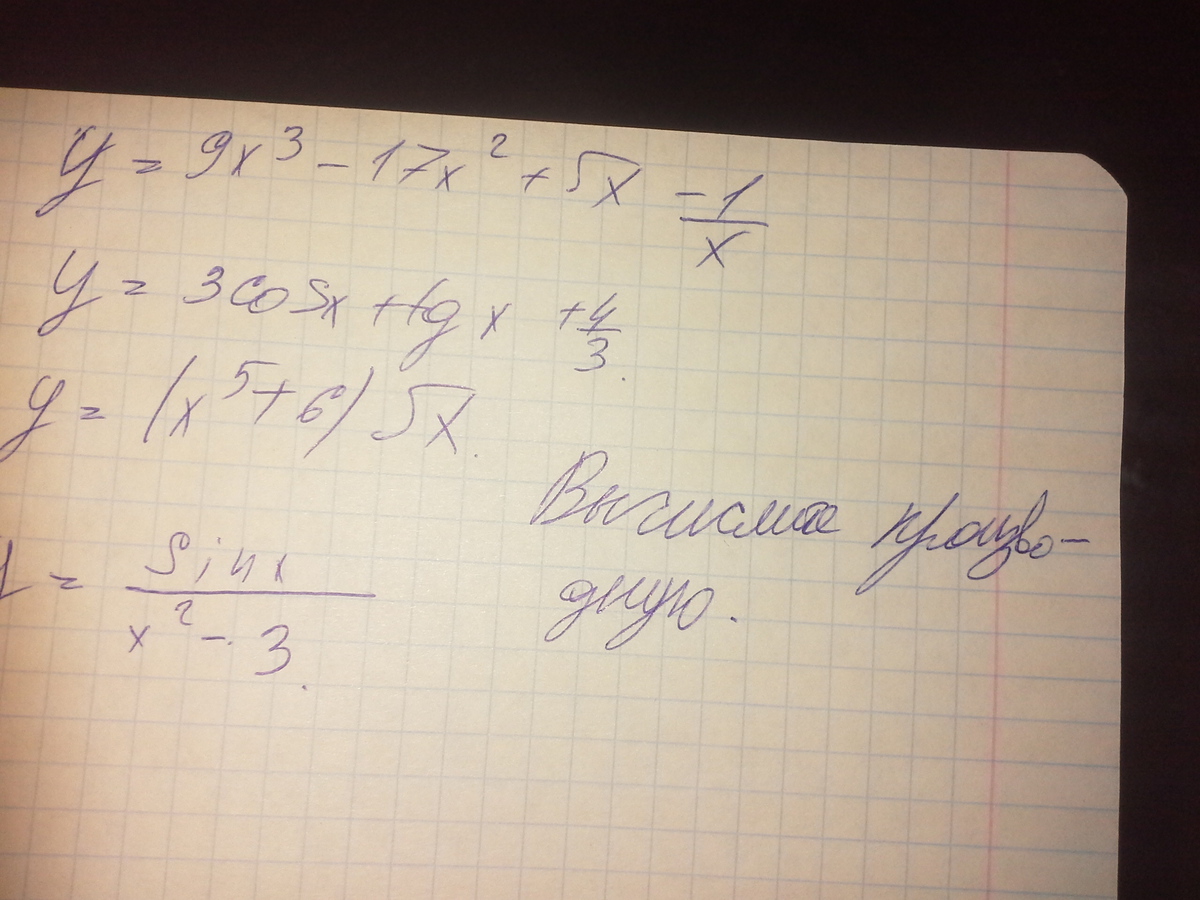 y = 9x³ - 17x² + √x - 1/x
y = 3cosx + tg x + 4/3.
y = (x⁵ + 6) √x.
y = sinx / x² - 3.
Вычислите произво-
дную.